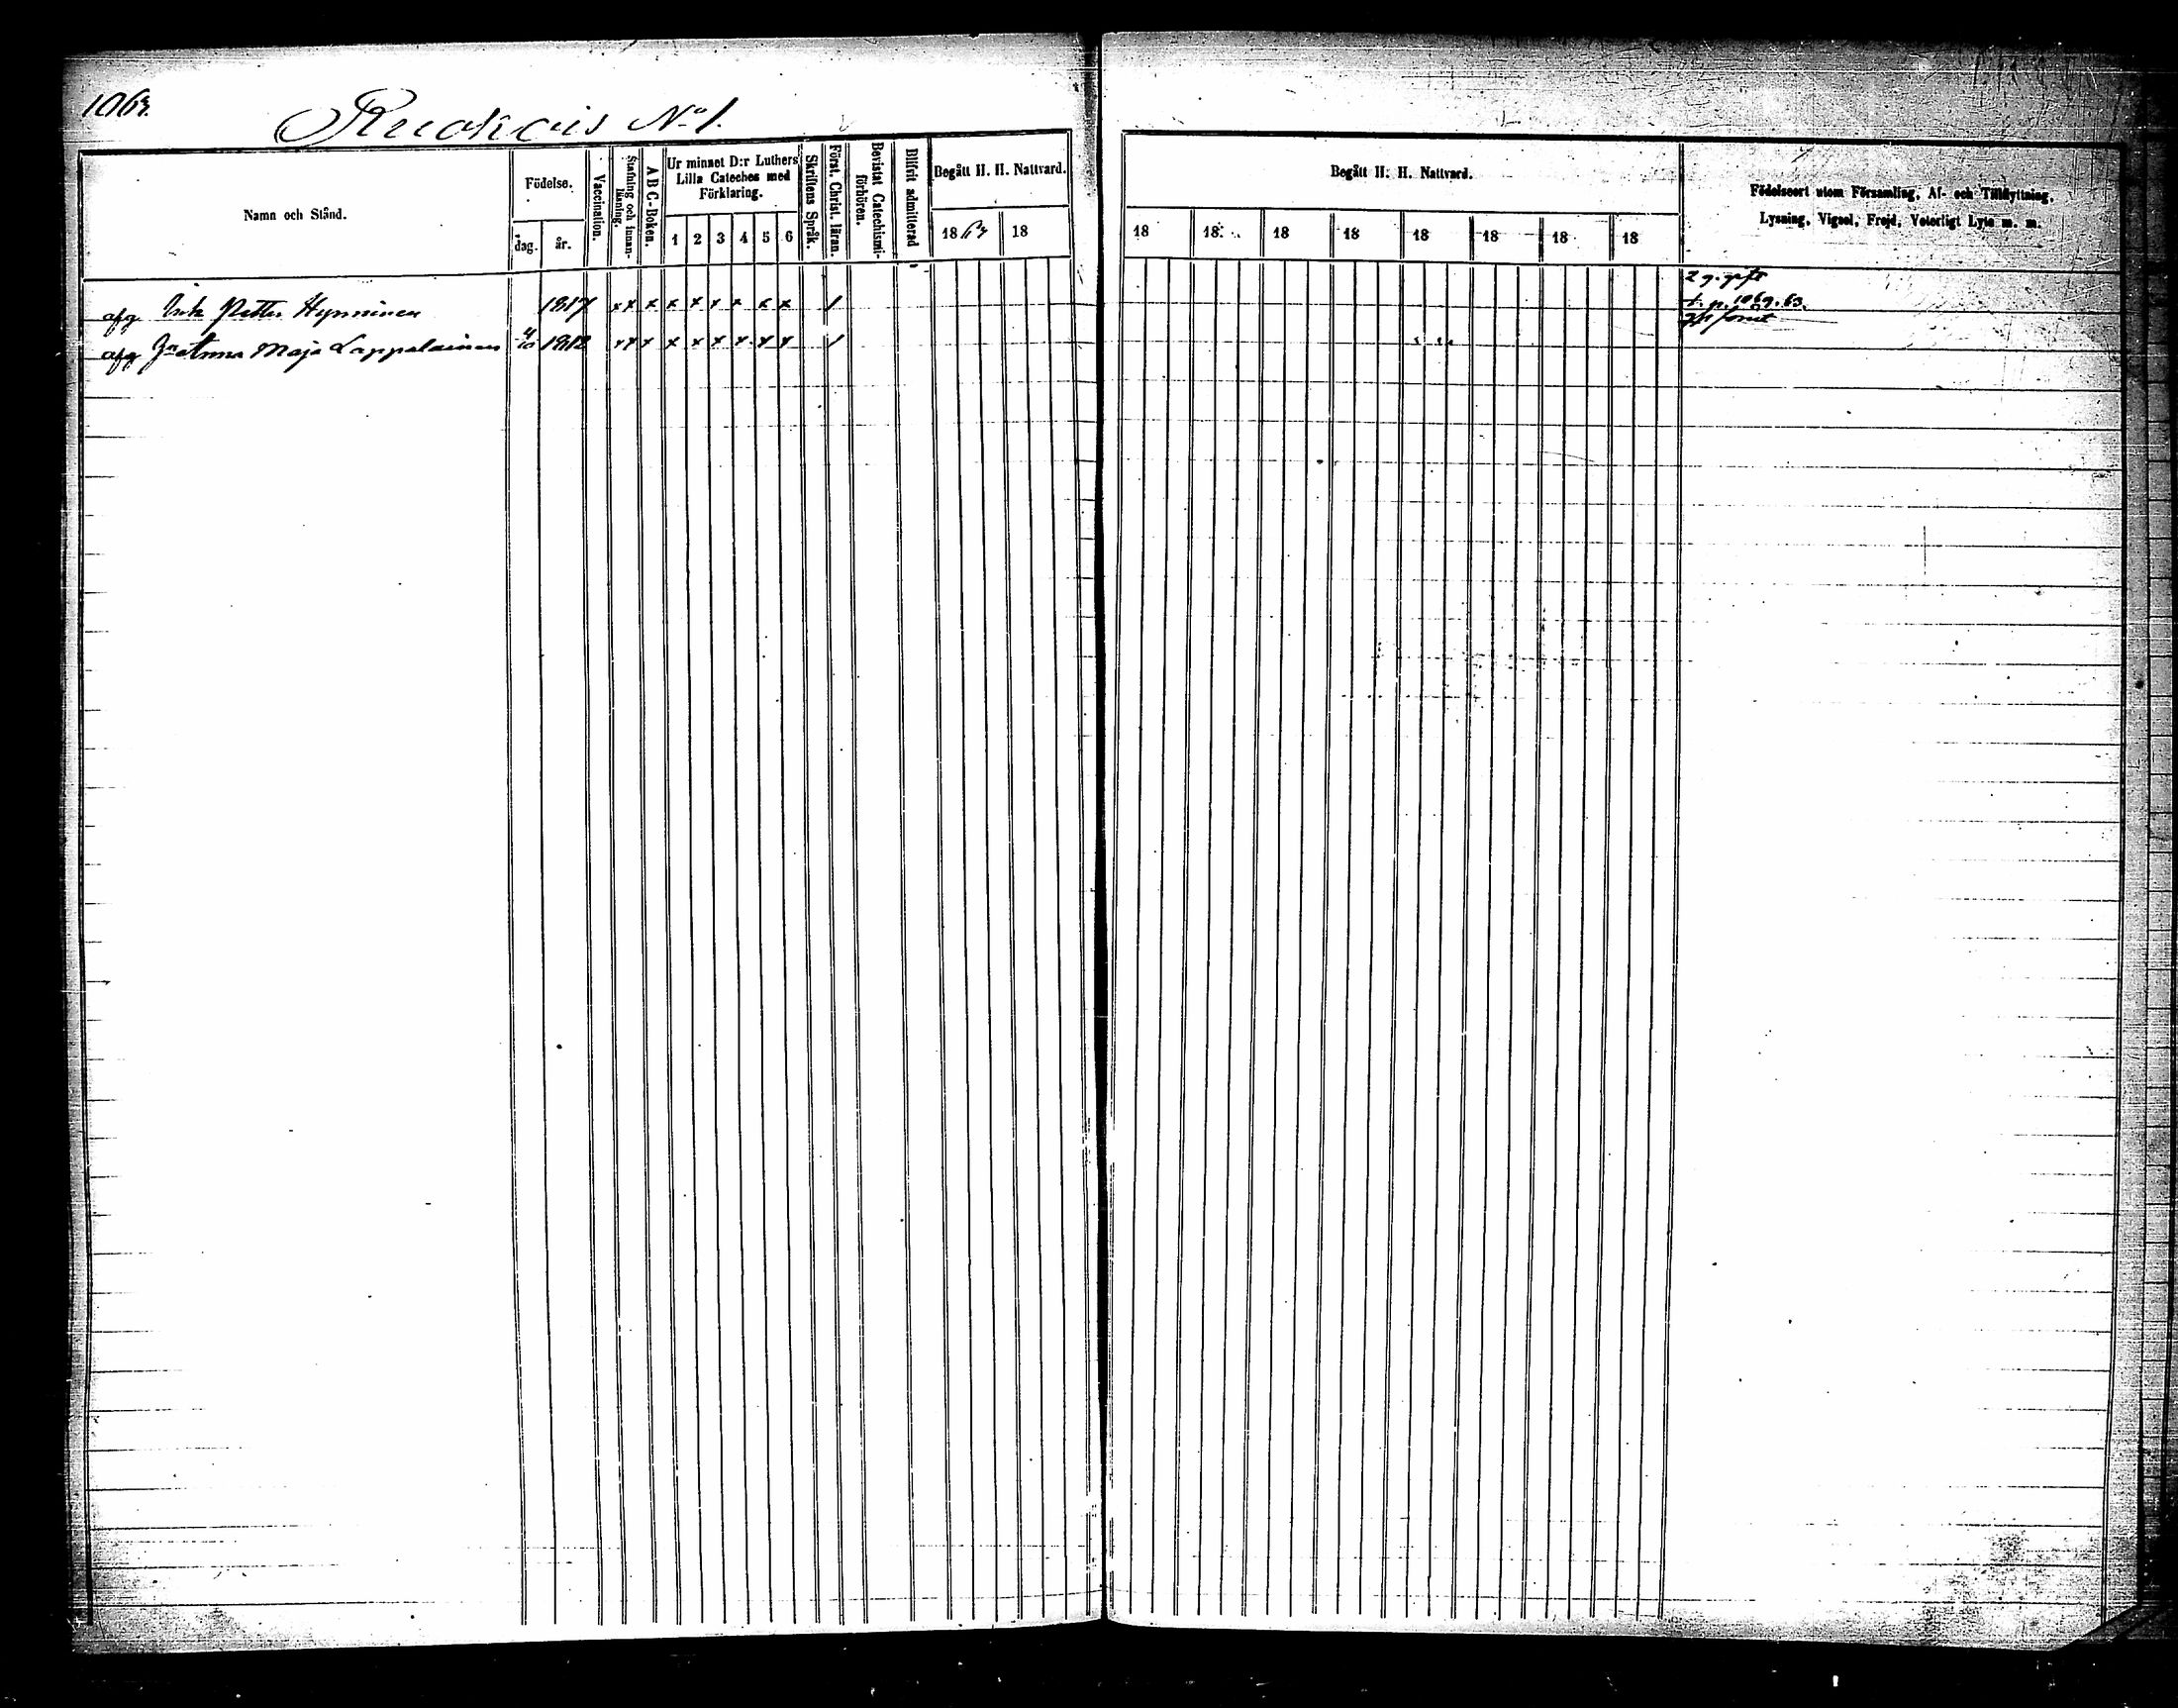 1063.
Ruokois No 1.
Namn och Stånd.
Födelse.
dag.
år.
Vaccination.
Stafning och innanläsning.
A B C-Boken.
Ur minnet D:r Luthers
Lilla Cateches med
Förklaring.
1 2 3 4 5 6
Skriftens Språk.
Först. Christ. läran.
Bevistat Catechismi-
förhören.
Blifvit admitterad
Begått H. H. Nattvard.
18 63 18
Begått H. H. Nattvard.
18 18 18 18 18 18 18 18
Födelseort utom Församling, Af- och Tillflyttning,
Lysning, Vigsel, Frejd, Veterligt Lyte m. m.
2 g. gift
afg Erik Petter Hynninen 1817 x x x x x x x x x 1
t. p. 1069. 63.
afg Anna Maja Lappalainen 4/10 1812 x x x x x x x x x 1